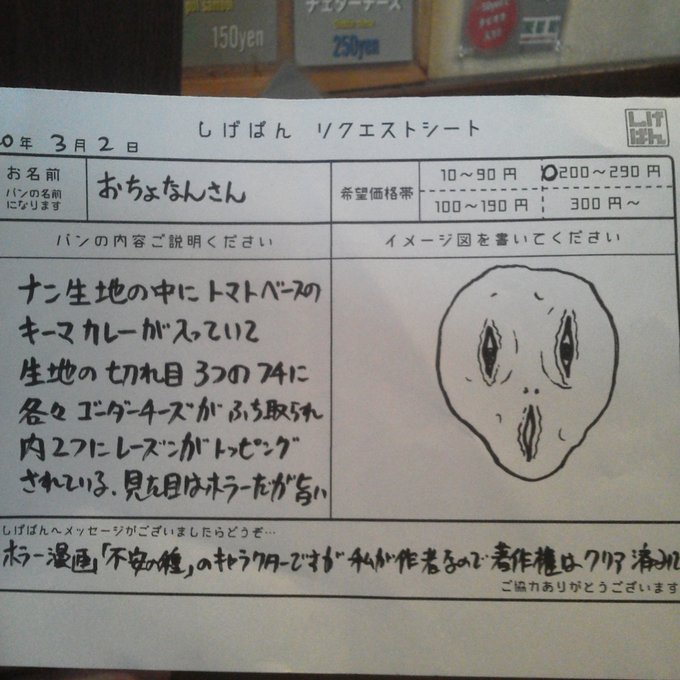 150yen
チェダーチーズ
250yen
しげぱん リクエストシート
しげ
ぱん
0年 3月 2日
お名前
パンの名前
になります
おちょなんさん
希望価格帯
10～90 円
200～290 円
100～190 円
300 円～
パンの内容ご説明ください
イメージ図を書いてください
ナン生地の中にトマトベースの
キーマカレーが入っていて
生地の切れ目 3つのフチに
各々ゴーダーチーズがふち取られ
内2つにレーズンがトッピング
されている.見た目はホラーだが旨い
しげぱんへメッセージがございましたらどうぞ…
ホラー漫画「不安の種」のキャラクターですが私が作者なので著作権はクリア済みです
ご協力ありがとうございます